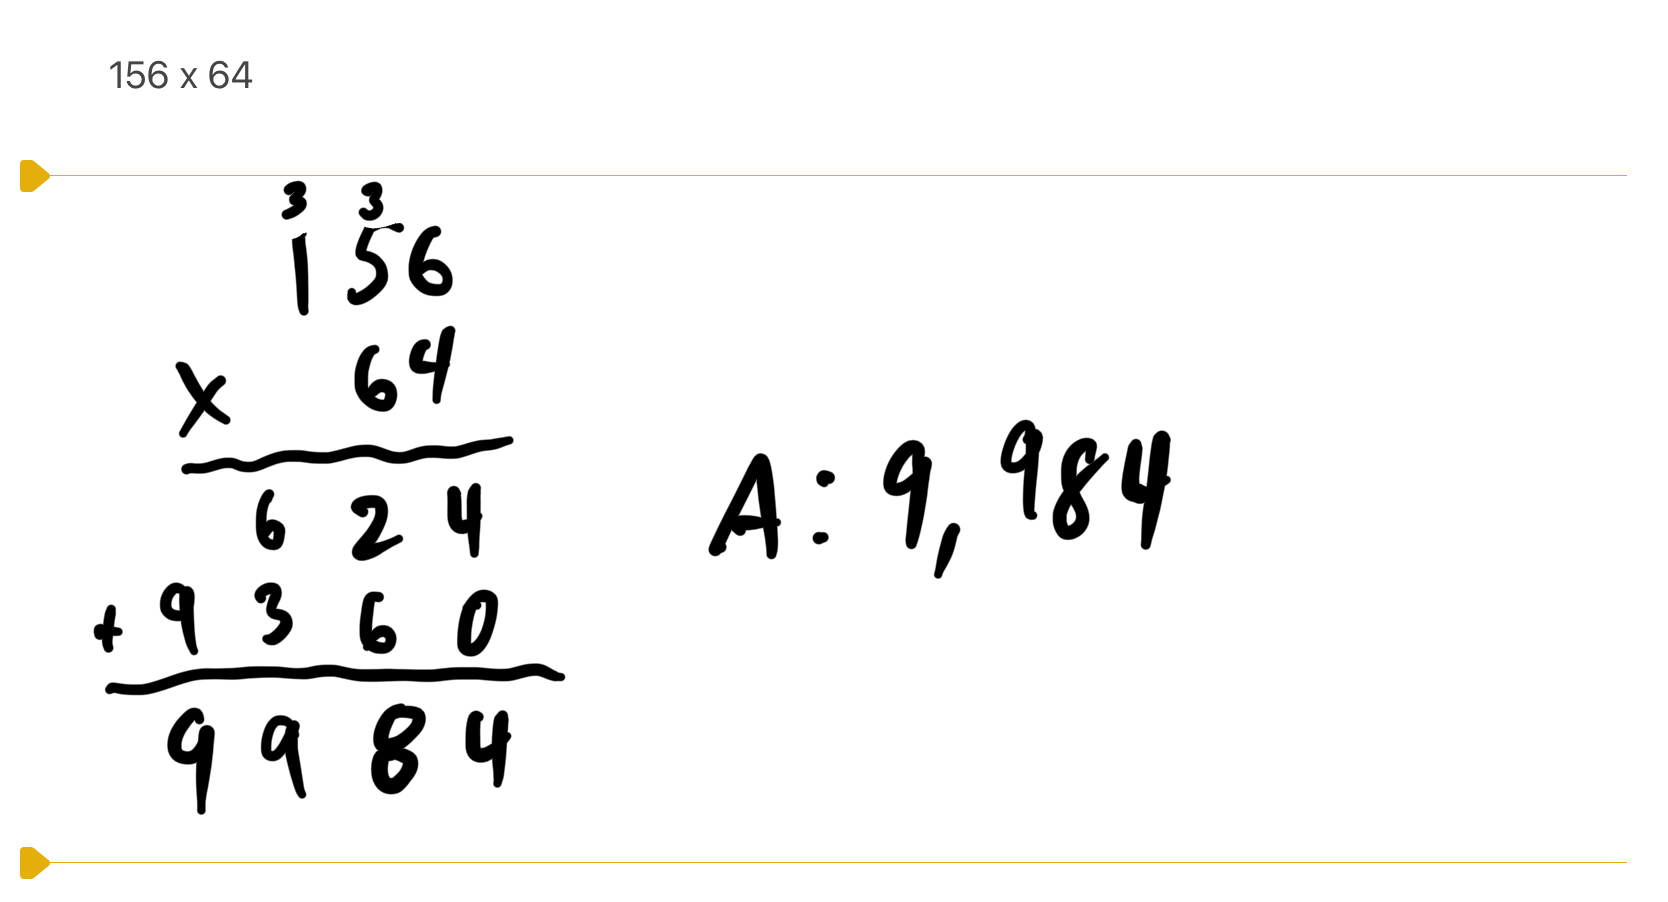 156 x 64
3 3
156
x 64
624
+ 9360
9984
A: 9,984